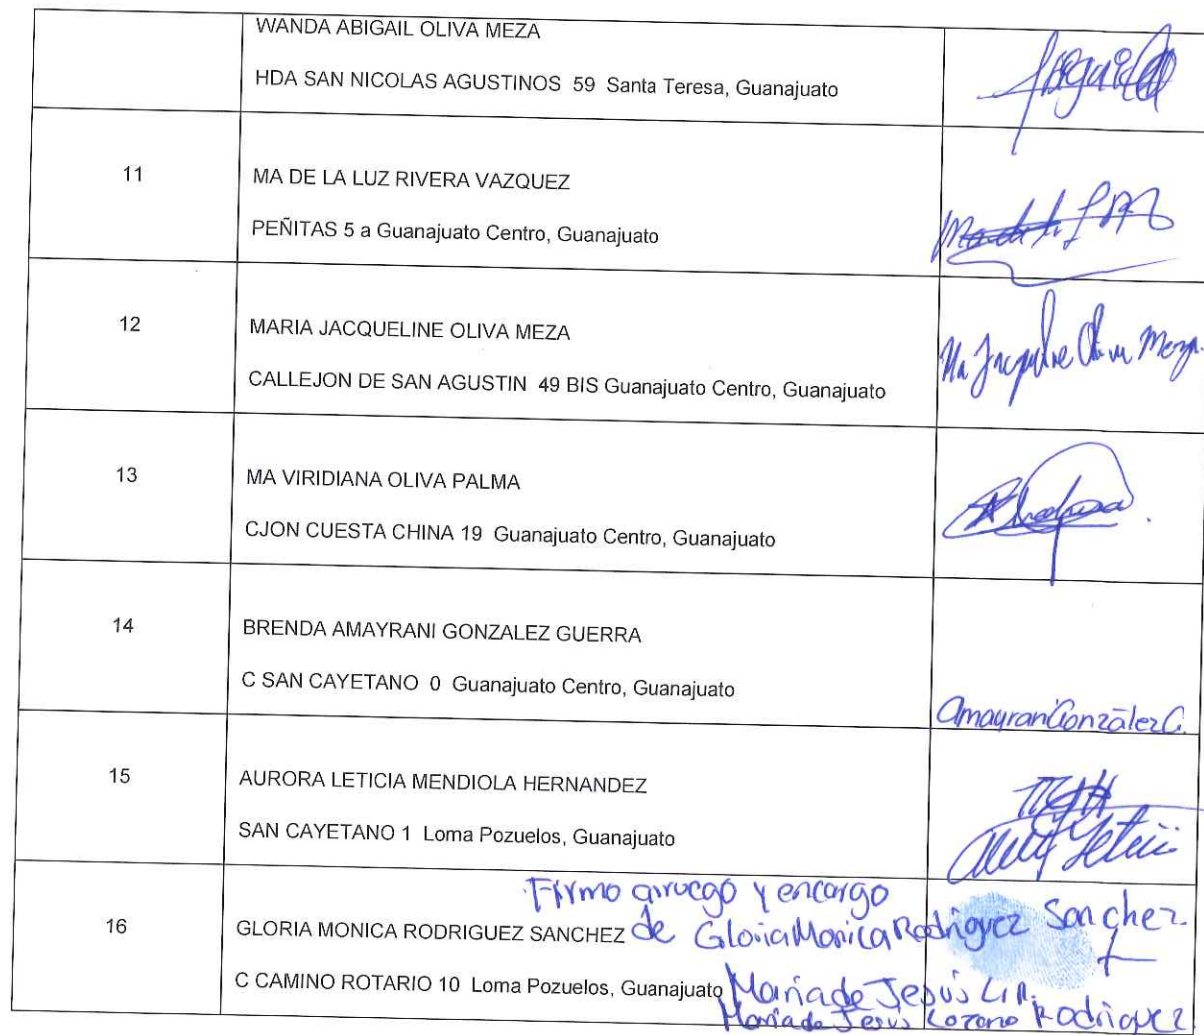 WANDA ABIGAIL OLIVA MEZA
HDA SAN NICOLAS AGUSTINOS 59 Santa Teresa, Guanajuato
11
MA DE LA LUZ RIVERA VAZQUEZ
PEÑITAS 5 a Guanajuato Centro, Guanajuato
12
MARIA JACQUELINE OLIVA MEZA
CALLEJON DE SAN AGUSTIN 49 BIS Guanajuato Centro, Guanajuato
Ma Jacqueline Oliva Meza.
13
MA VIRIDIANA OLIVA PALMA
CJON CUESTA CHINA 19 Guanajuato Centro, Guanajuato
14
BRENDA AMAYRANI GONZALEZ GUERRA
C SAN CAYETANO 0 Guanajuato Centro, Guanajuato
Amayrani González G.
15
AURORA LETICIA MENDIOLA HERNANDEZ
SAN CAYETANO 1 Loma Pozuelos, Guanajuato
Firmo a ruego y encargo
16
GLORIA MONICA RODRIGUEZ SANCHEZ
de Gloria Monica Rodriguez Sanchez
C CAMINO ROTARIO 10 Loma Pozuelos, Guanajuato
Maria de Jesús L.R.
Maria de Jesús Lozano Rodriguez